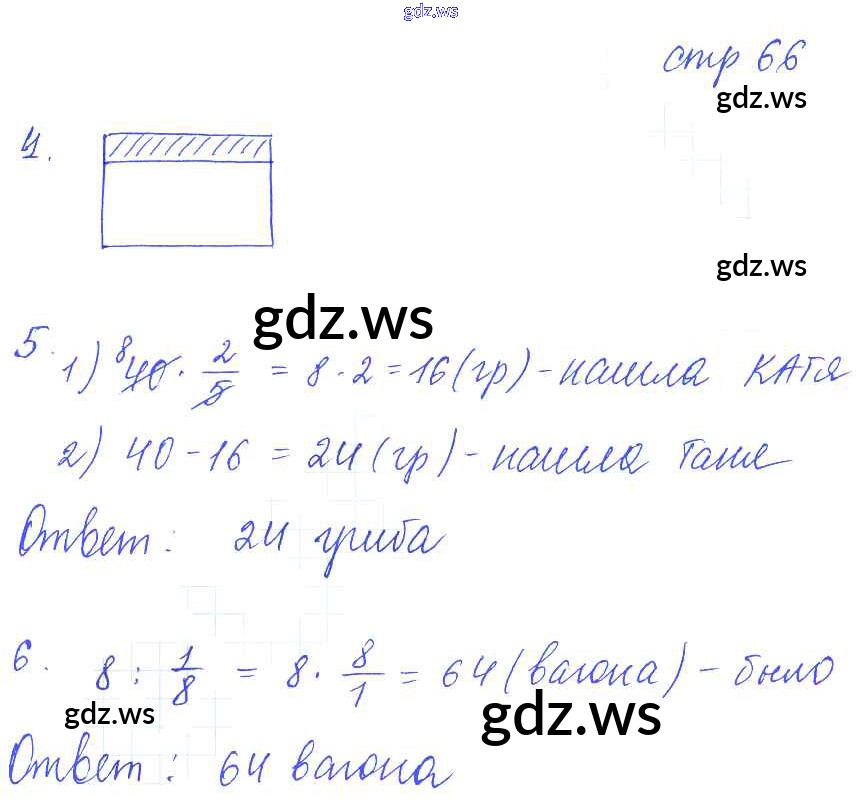 gdz.ws
стр 66
gdz.ws
4.
gdz.ws
gdz.ws
5. 1) ⁸40 · 2/5 = 8 · 2 = 16 (гр) - нашла Катя
2) 40 - 16 = 24 (гр) - нашла Таня
Ответ: 24 гриба
6. 8 : 1/8 = 8 · 8/1 = 64 (вагона) - было
gdz.ws
gdz.ws
Ответ: 64 вагона